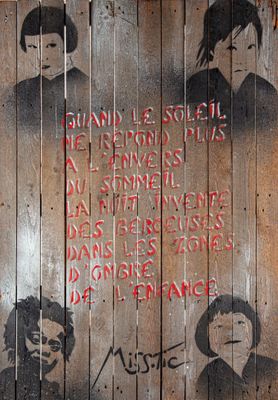 QUAND LE SOLEIL
NE RÉPOND PLUS
A L'ENVERS
DU SOMMEIL
LA NUIT INVENTE
DES BERCEUSES
DANS LES ZONES
D'OMBRE
DE L'ENFANCE
MISS.TIC